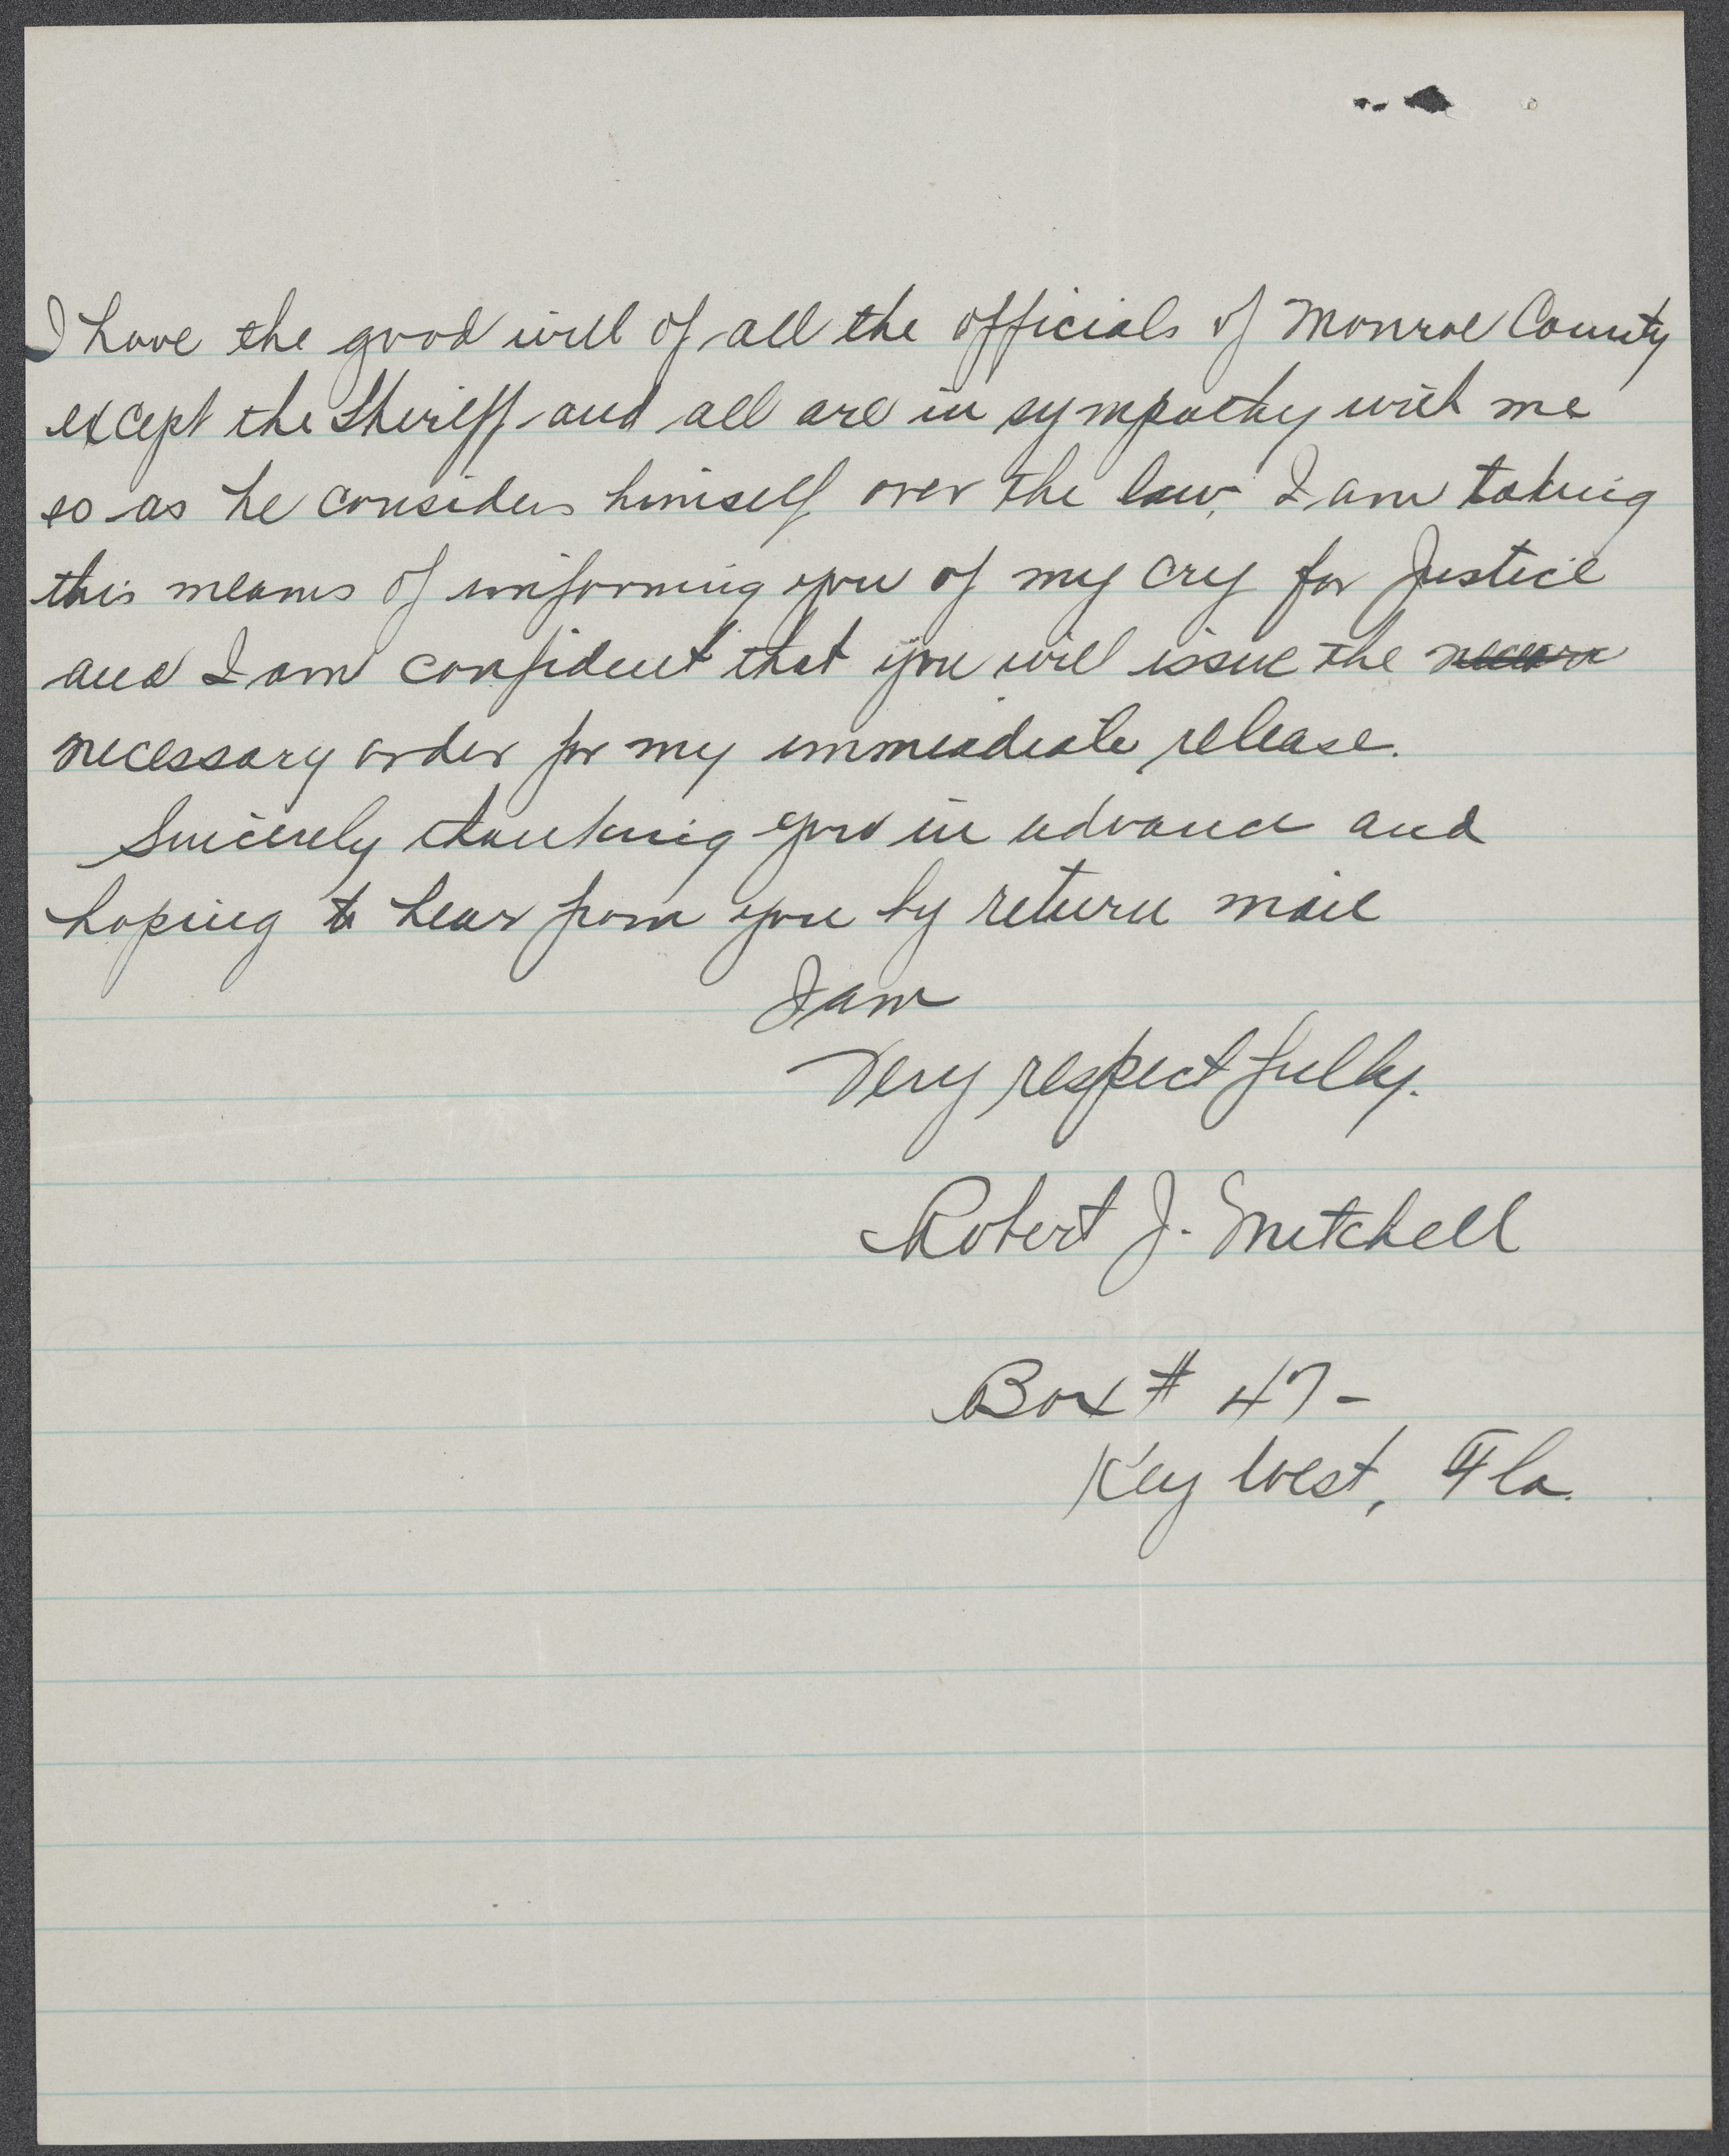 I have the good will of all the officials of Monroe County
except the Sheriff and all are in sympathy with me
so as he considers himself over the law, I am taking
this means of informing you of my cry for Justice
and I am confident that you will issue the
necessary order for my immeadiate release.
Sincerely thanking you in advance and
hoping to hear from you by return mail
I am
Very respectfully.
Robert J. Mitchell
Box # 47-
Key West, Fla.